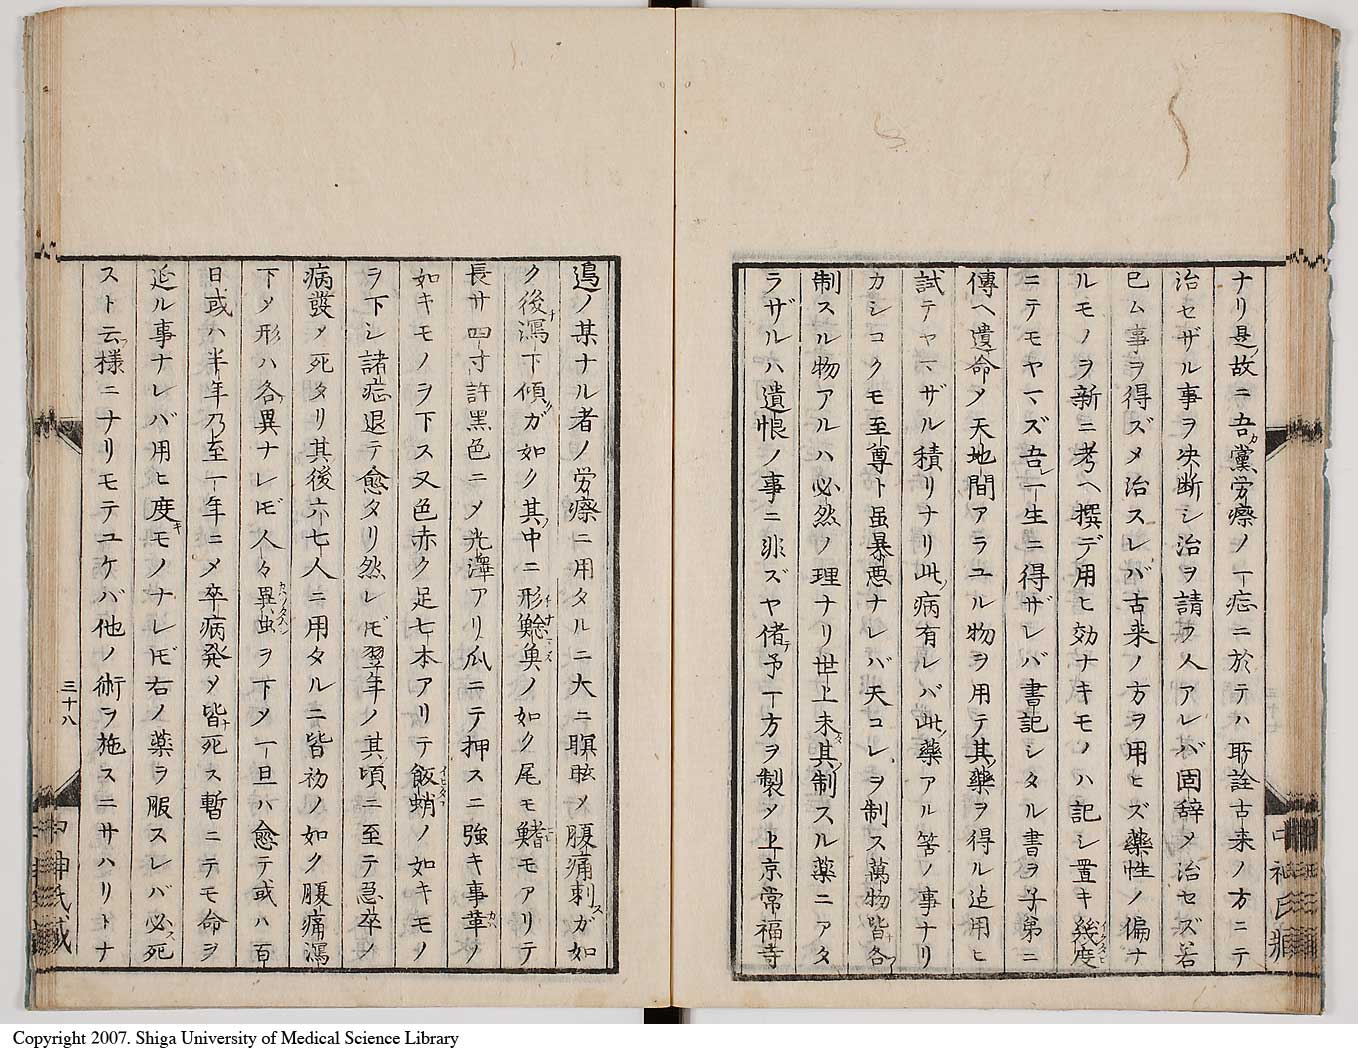 ナリ是故ニ吾党労瘵ノ一症ニ於テハ所詮古来ノ方ニテ
治セザル事ヲ决断シ治ヲ請フ人アレバ固辞メ治セズ若
已ム事ヲ得ズメ治スレバ古来ノ方ヲ用ヒズ薬性ノ偏ナ
ルモノヲ新ニ考ヘ撰デ用ヒ効ナキモノハ記シ置キ幾度
ニテモヤマズ吾一生ニ得ザレバ書記シタル書ヲ子弟ニ
傳ヘ遺命メ天地間アラユル物ヲ用テ其薬ヲ得ル迠用ヒ
試テヤマザル積リナリ此病有レバ此薬アル筈ノ事ナリ
カシコクモ至尊ト虽暴悪ナレバ天コレヲ制ス萬物皆各
制スル物アルハ必然ノ理ナリ世上未其制スル薬ニアタ
ラザルハ遺恨ノ事ニ非ズヤ偖予一方ヲ製メ上京常福寺
中神氏蔵
邉ノ某ナル者ノ労瘵ニ用タルニ大ニ瞑眩メ腹痛刺ガ如
ク後瀉下傾ガ如ク其中ニ形鯰魚ノ如ク尾モ鰭モアリテ
長サ四寸許黒色ニメ光澤アリ爪ニテ押スニ強キ事革ノ
如キモノヲ下ス又色赤ク足七本アリテ飯蛸ノ如キモノ
ヲ下シ諸症退テ愈タリ然レドモ翌年ノ其頃ニ至テ急卒ノ
病發メ死タリ其後六七人ニ用タルニ皆初ノ如ク腹痛瀉
下メ形ハ各異ナレドモ人々異虫ヲ下メ一旦ハ愈テ或ハ百
日或ハ半年乃至一年ニメ卒病発メ皆死ス暫ニテモ命ヲ
延ル事ナレバ用ヒ度モノナレドモ右ノ薬ヲ服スレバ必死
スト云様ニナリモテユケバ他ノ術ヲ施スニサハリトナ
三十八
中神氏蔵
Copyright 2007. Shiga University of Medical Science Library